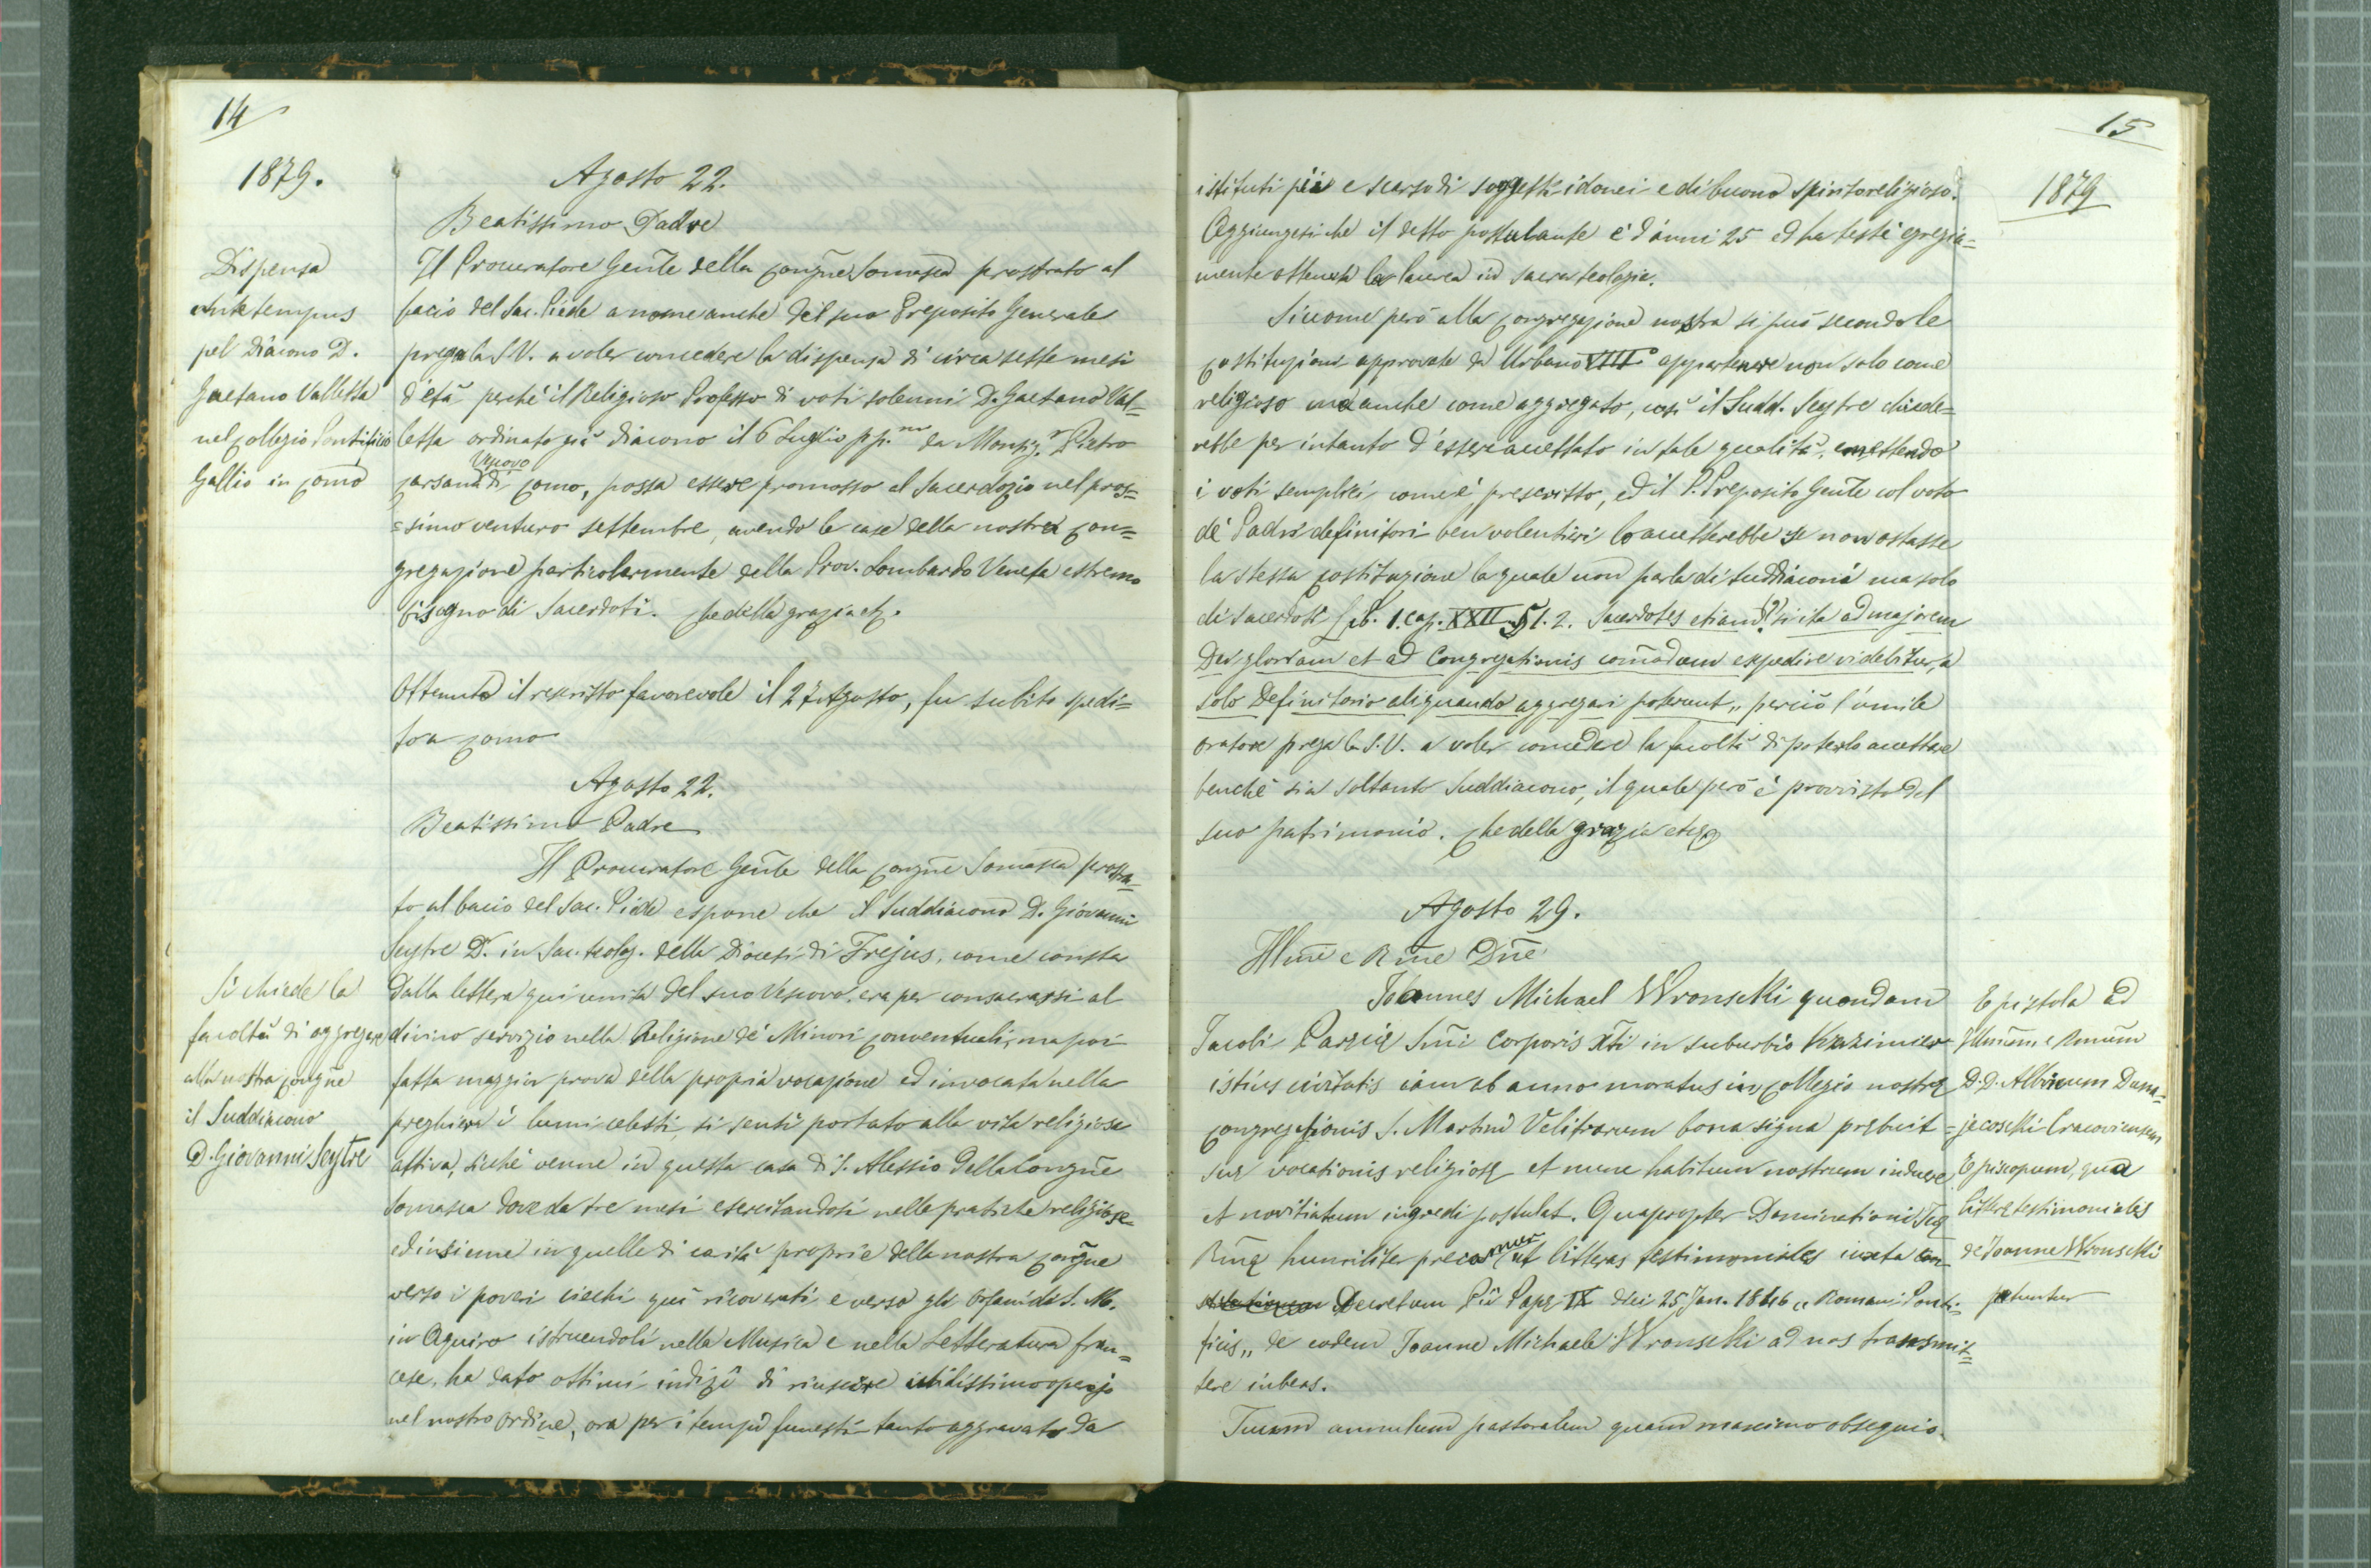 14
1879.
Agosto 22.
Beatissimo Padre
Dispensa
ante tempus
pel Diacono D.
Gaetano Valletta
nel Collegio Pontificio
Gallio in Como
Il Procuratore Gen̄le della Congñe Somasca prostrato al
bacio del Sac. Piede a nome anche del suo Preposito Generale
prega la S.V. a voler concedere la dispensa di circa sette mesi
d'età perchè il Religioso Professo di voti solenni D. Gaetano Val=
letta ordinato già Diacono il 6 Luglio pp.mo da Monsig.r Pietro
Carsana Vescovo di Como, possa essere promosso al Sacerdozio nel pros=
=simo venturo settembre, avendo le case della nostra Con=
gregazione particolarmente della Prov. Lombardo Veneta estremo
bisogno di Sacerdoti. Che della grazia etc.
Ottenuto il rescritto favorevole il 27 Agosto, fu subito spedi=
to a Como
Agosto 22.
Beatissimo Padre
Il Procuratore Gen̄le della Congñe Somasca prostra=
to al bacio del Sac. Piede espone che il Suddiacono D. Giovanni
Seytre D.r in Sac. teolog. della Diocesi di Frejus, come consta
Si chiede la
facoltà di aggregare
alla nostra Congñe
il Suddiacono
D. Giovanni Seytre
dalla lettera qui unita del suo Vescovo, era per consacrarsi al
divino servizio nella Religione de' Minori Conventuali, ma poi
fatta maggior prova della propria vocazione ed invocata nella
preghiera i lumi celesti, si sentì portato alla vita religiosa
attiva, sichè venne in questa casa di S. Alessio della Congñe
Somasca dove da tre mesi esercitandosi nelle pratiche religiose=
ed insieme in quelle di carità proprie della nostra Congñe
verso i poveri ciechi quì ricoverati e verso gli Orfani di S. M.
in Aquiro istruendoli nella Musica e nella Letteratura fran=
cese, ha dato ottimi indizî di riuscire utilissimo operajo
nel nostro Ordine, ora per i tempi funesti tanto aggravato da
15
1879
istituti pii e scarso di soggetti idonei e di buono spirito religioso.
Aggiungesi che il detto postulante è d'anni 25 ed ha testè egregia=
mente ottenuta la laurea in sacra teologia.
Siccome però alla Congregazione nostra si può secondo le
Costituzioni approvate da Urbano VIII° appartenere non solo come
religioso ma anche come aggregato, così il Sudd. Seytre chiede=
rebbe per intanto d'essere accettato in tale qualità, emettendo
i voti semplici come è prescritto, ed il P. Preposito Gen̄le col voto
de' Padri definitori ben volentieri lo accetterebbe se non ostasse
la stessa Costituzione la quale non parla di Suddiaconi ma solo
di Sacerdoti Lib. 1. cap. XXII § 1. 2. Sacerdotes etiam (?) si ita ad majorem
Dei gloriam et ad Congregationis com̄odum expedire videbitur, a
solo Definitorio aliquando aggregari poterunt„ perciò l'umile
oratore prega la S.V. a voler concedere la facoltà di poterlo accettare
benchè sia soltanto Suddiacono, il quale però è provvisto del
suo patrimonio. Che della grazia etc.
Agosto 29.
Illm̄e e Rm̄e Dñe
Joannes Michael Wronscki quondam
Jacobi Parœciæ Sm̄i Corporis Xti in suburbio Kazimier
istius civitatis iam ab anno moratus in Collegio nostræ
Congregationis S. Martini Velitrarum bona signa præbuit
suæ vocationis religiosæ et nunc habitum nostrum induere
et novitiatum ingredi postulat. Quapropter Dominationi Tuæ
Rm̄æ humiliter precamur ut litteras testimoniales iuxta
Decretum Pii Papæ IX diei 25 Jan. 1846 „Romani Ponti=
ficis„ de eodem Joanne Michaele Wronscki ad nos transmit=
tere iubeas.
Tuum annulum pastoralem quam maximo obsequio
Epistola ad
Illm̄um e Rm̄um
D.D. Albinum Duna=
=jecoscki Cracoviensem
Episcopum, qua
litteræ testimoniales
de Joanne Wronscki
petuntur